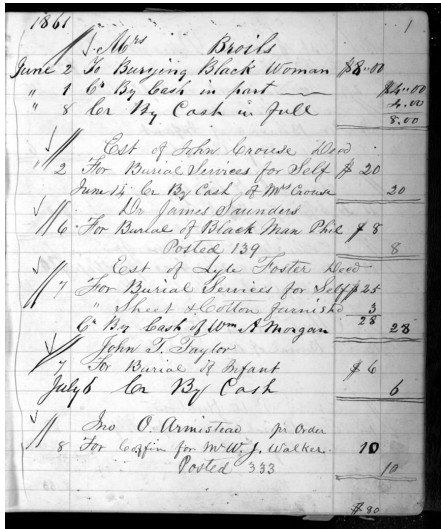 1861 1
J. Mrs Broils
June 2 To Burying Black Woman $8.00
" 1 Cr By Cash in part $4.00
" 8 Cr By Cash in full 4.00
8.00
Est of John Crouse Decd
" 2 For Burial Services for Self $ 20
June 14 Cr By Cash of Mrs Crouse 20
Dr James Saunders
" 6 For Burial of Black Man Phil $ 8
Posted 139 8
Est of Lyle Foster Decd
" 7 For Burial Services for Self $25
" Sheet & Cotton furnishd 3
28
Cr By Cash of Wm A Morgan 28
John T. Taylor
7 For Burial of Infant $ 6
July 6 Cr By Cash 6
Jno O. Armistead pr Order
" 8 For Coffin for Mr W. J. Walker 10
Posted 333 10
$80